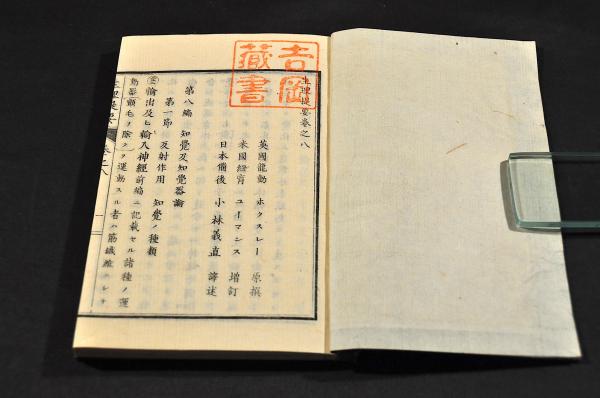 吉岡
藏書
生理提要卷之八
英國龍動 ホクスレー 原撰
米國紐育 ユーマンス 增訂
日本備後 小林義直 譯述
第八編 知覺及知覺器論
第一節 反射作用 知覺ノ種類
輸出及ヒ輸入神經前編ニ記載セル諸種ノ運
動器顫毛ノ除クヲ運動スル者ハ筋纖維ニシテ
生理提要 卷之八 一